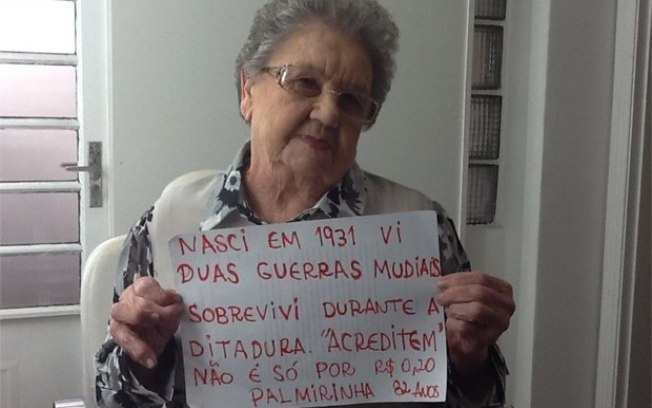 NASCI EM 1931 VI
DUAS GUERRAS MUDIAIS
SOBREVIVI DURANTE A
DITADURA. "ACREDITEM"
NÃO É SÓ POR R$ 0,20
PALMIRINHA 82 ANOS